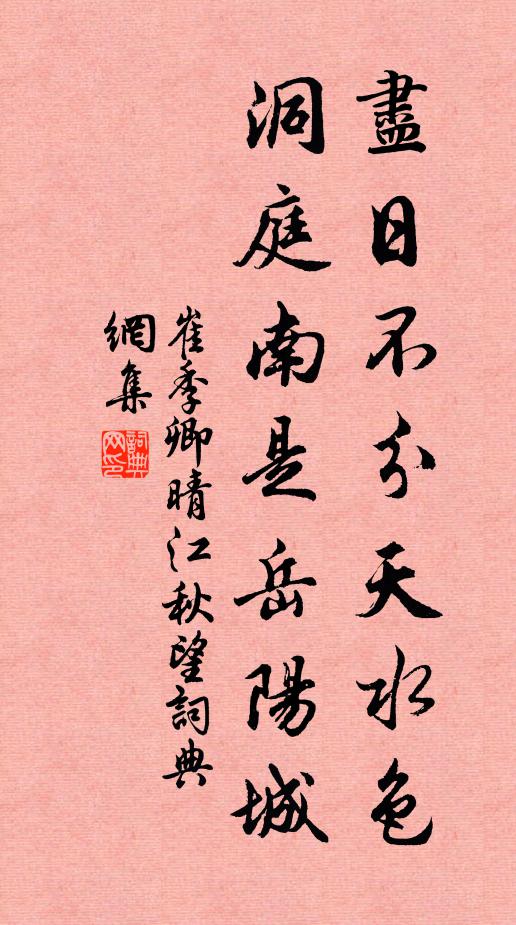 盡日不分天水色
洞庭南是岳陽城
崔季卿晴江秋望詞典
網集
詞典網印